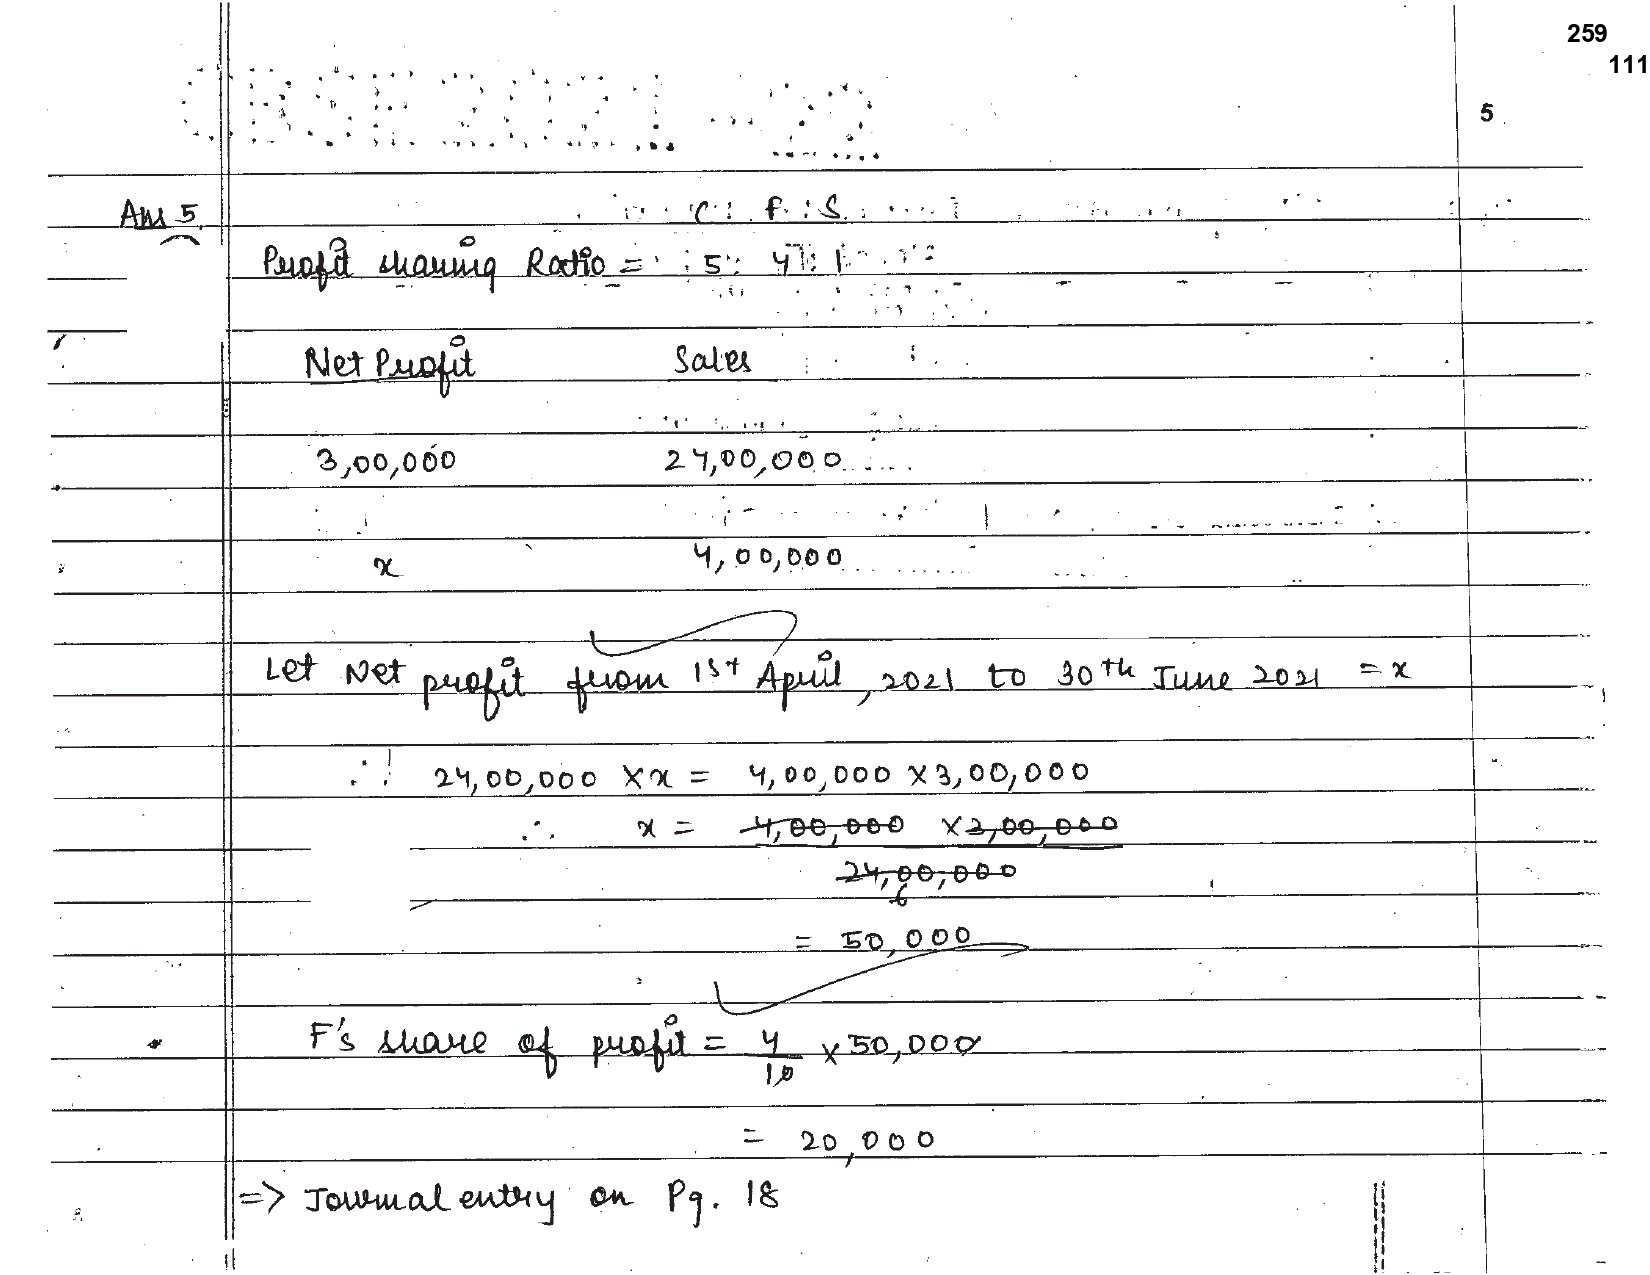 259
111
CBSE 2021-22
5
Ans 5.
C : F : S
Profit sharing Ratio = 5 : 4 : 1
Net Profit Sales
3,00,000 24,00,000
x 4,00,000
Let Net profit from 1st April, 2021 to 30th June 2021 = x
∴ 24,00,000 × x = 4,00,000 × 3,00,000
∴ x = 4,00,000 × 3,00,000
24,00,000
6
= 50,000
F's share of profit = 4/10 × 50,000
= 20,000
=> Journal entry on Pg. 18